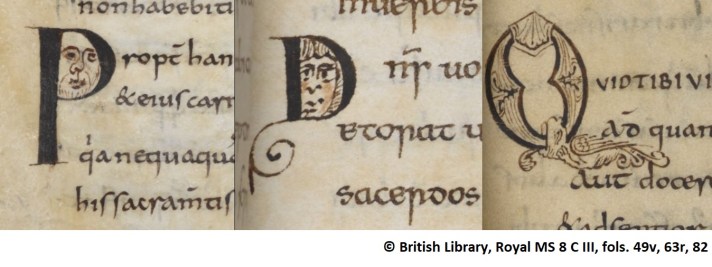 nonhabebiti
Propt̄ han
&eius carn
q̄a nequaquā
his sacram̄tis
P nr̄ uo
etorat u
sacerdos
QVIDTIBI VI
ad quan
aut docer
© British Library, Royal MS 8 C III, fols. 49v, 63r, 82